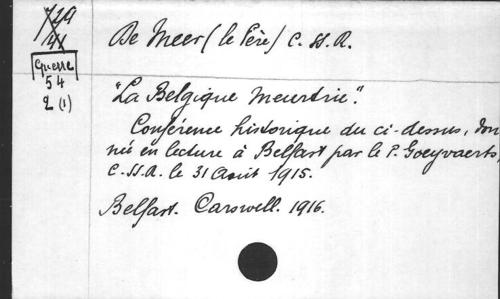 De Meer (le Père) C. SS. R.
Guerre
54
2 (1)
"La Belgique meurtrie".
Conférence historique du ci-dessus, don
née en lecture à Belfast par le P. Goeyvaerts,
C. SS. R. le 31 Août 1915.
Belfast. Carswell. 1916.